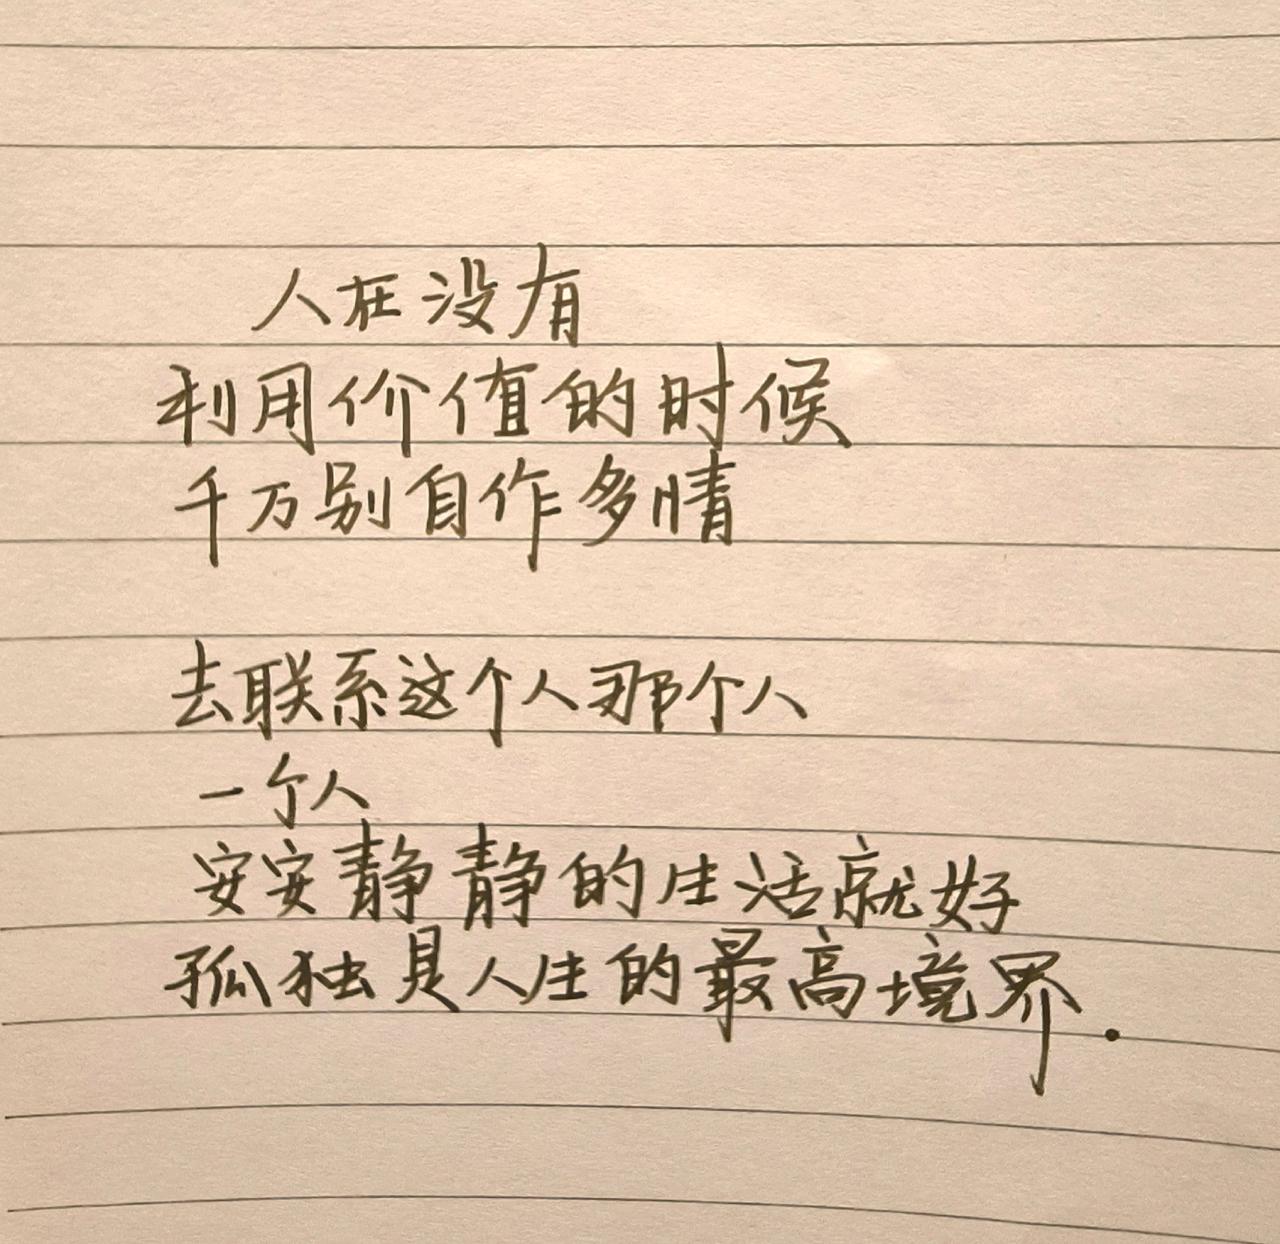 人在没有
利用价值的时候
千万别自作多情
去联系这个人那个人
一个人
安安静静的生活就好
孤独是人生的最高境界.